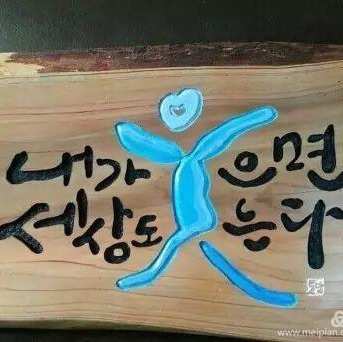 내가 웃으면
세상도 웃는다
www.meipian.c